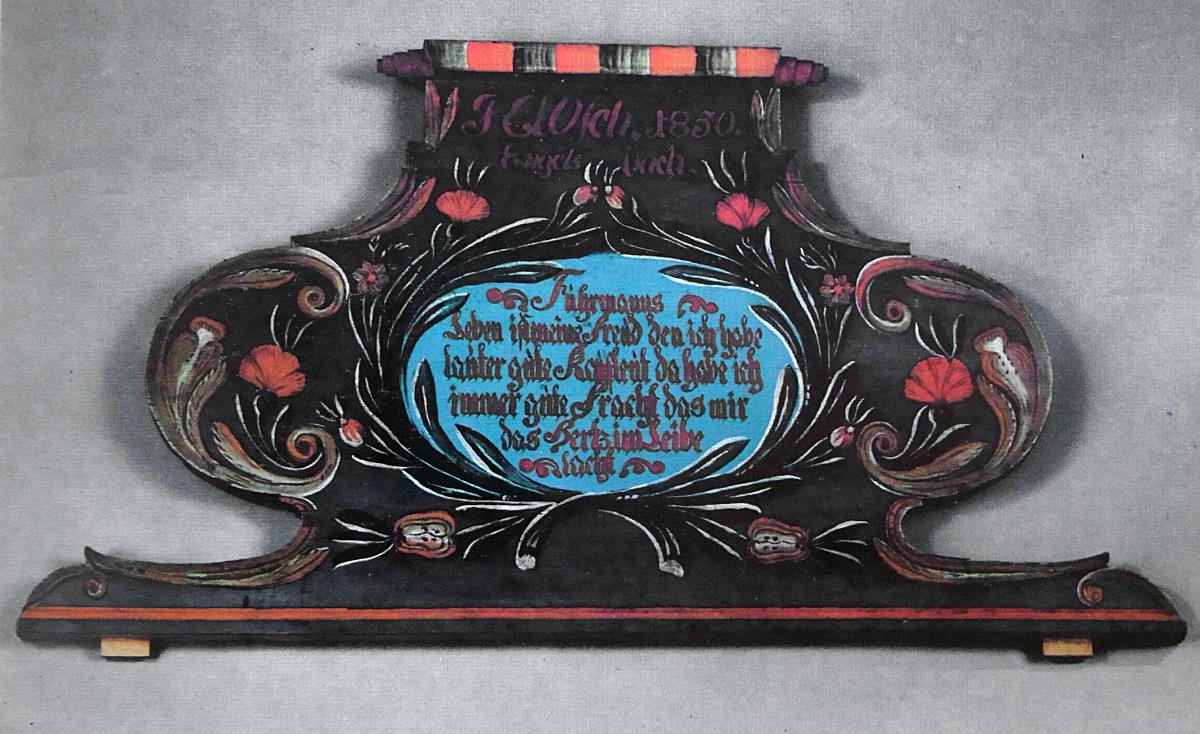 1850.
Fuhrmanns
Leben ist meine Freud den ich habe
lauter gute Kaufleut da habe ich
immer gute Fracht das mir
das Hertz im Leibe
lacht